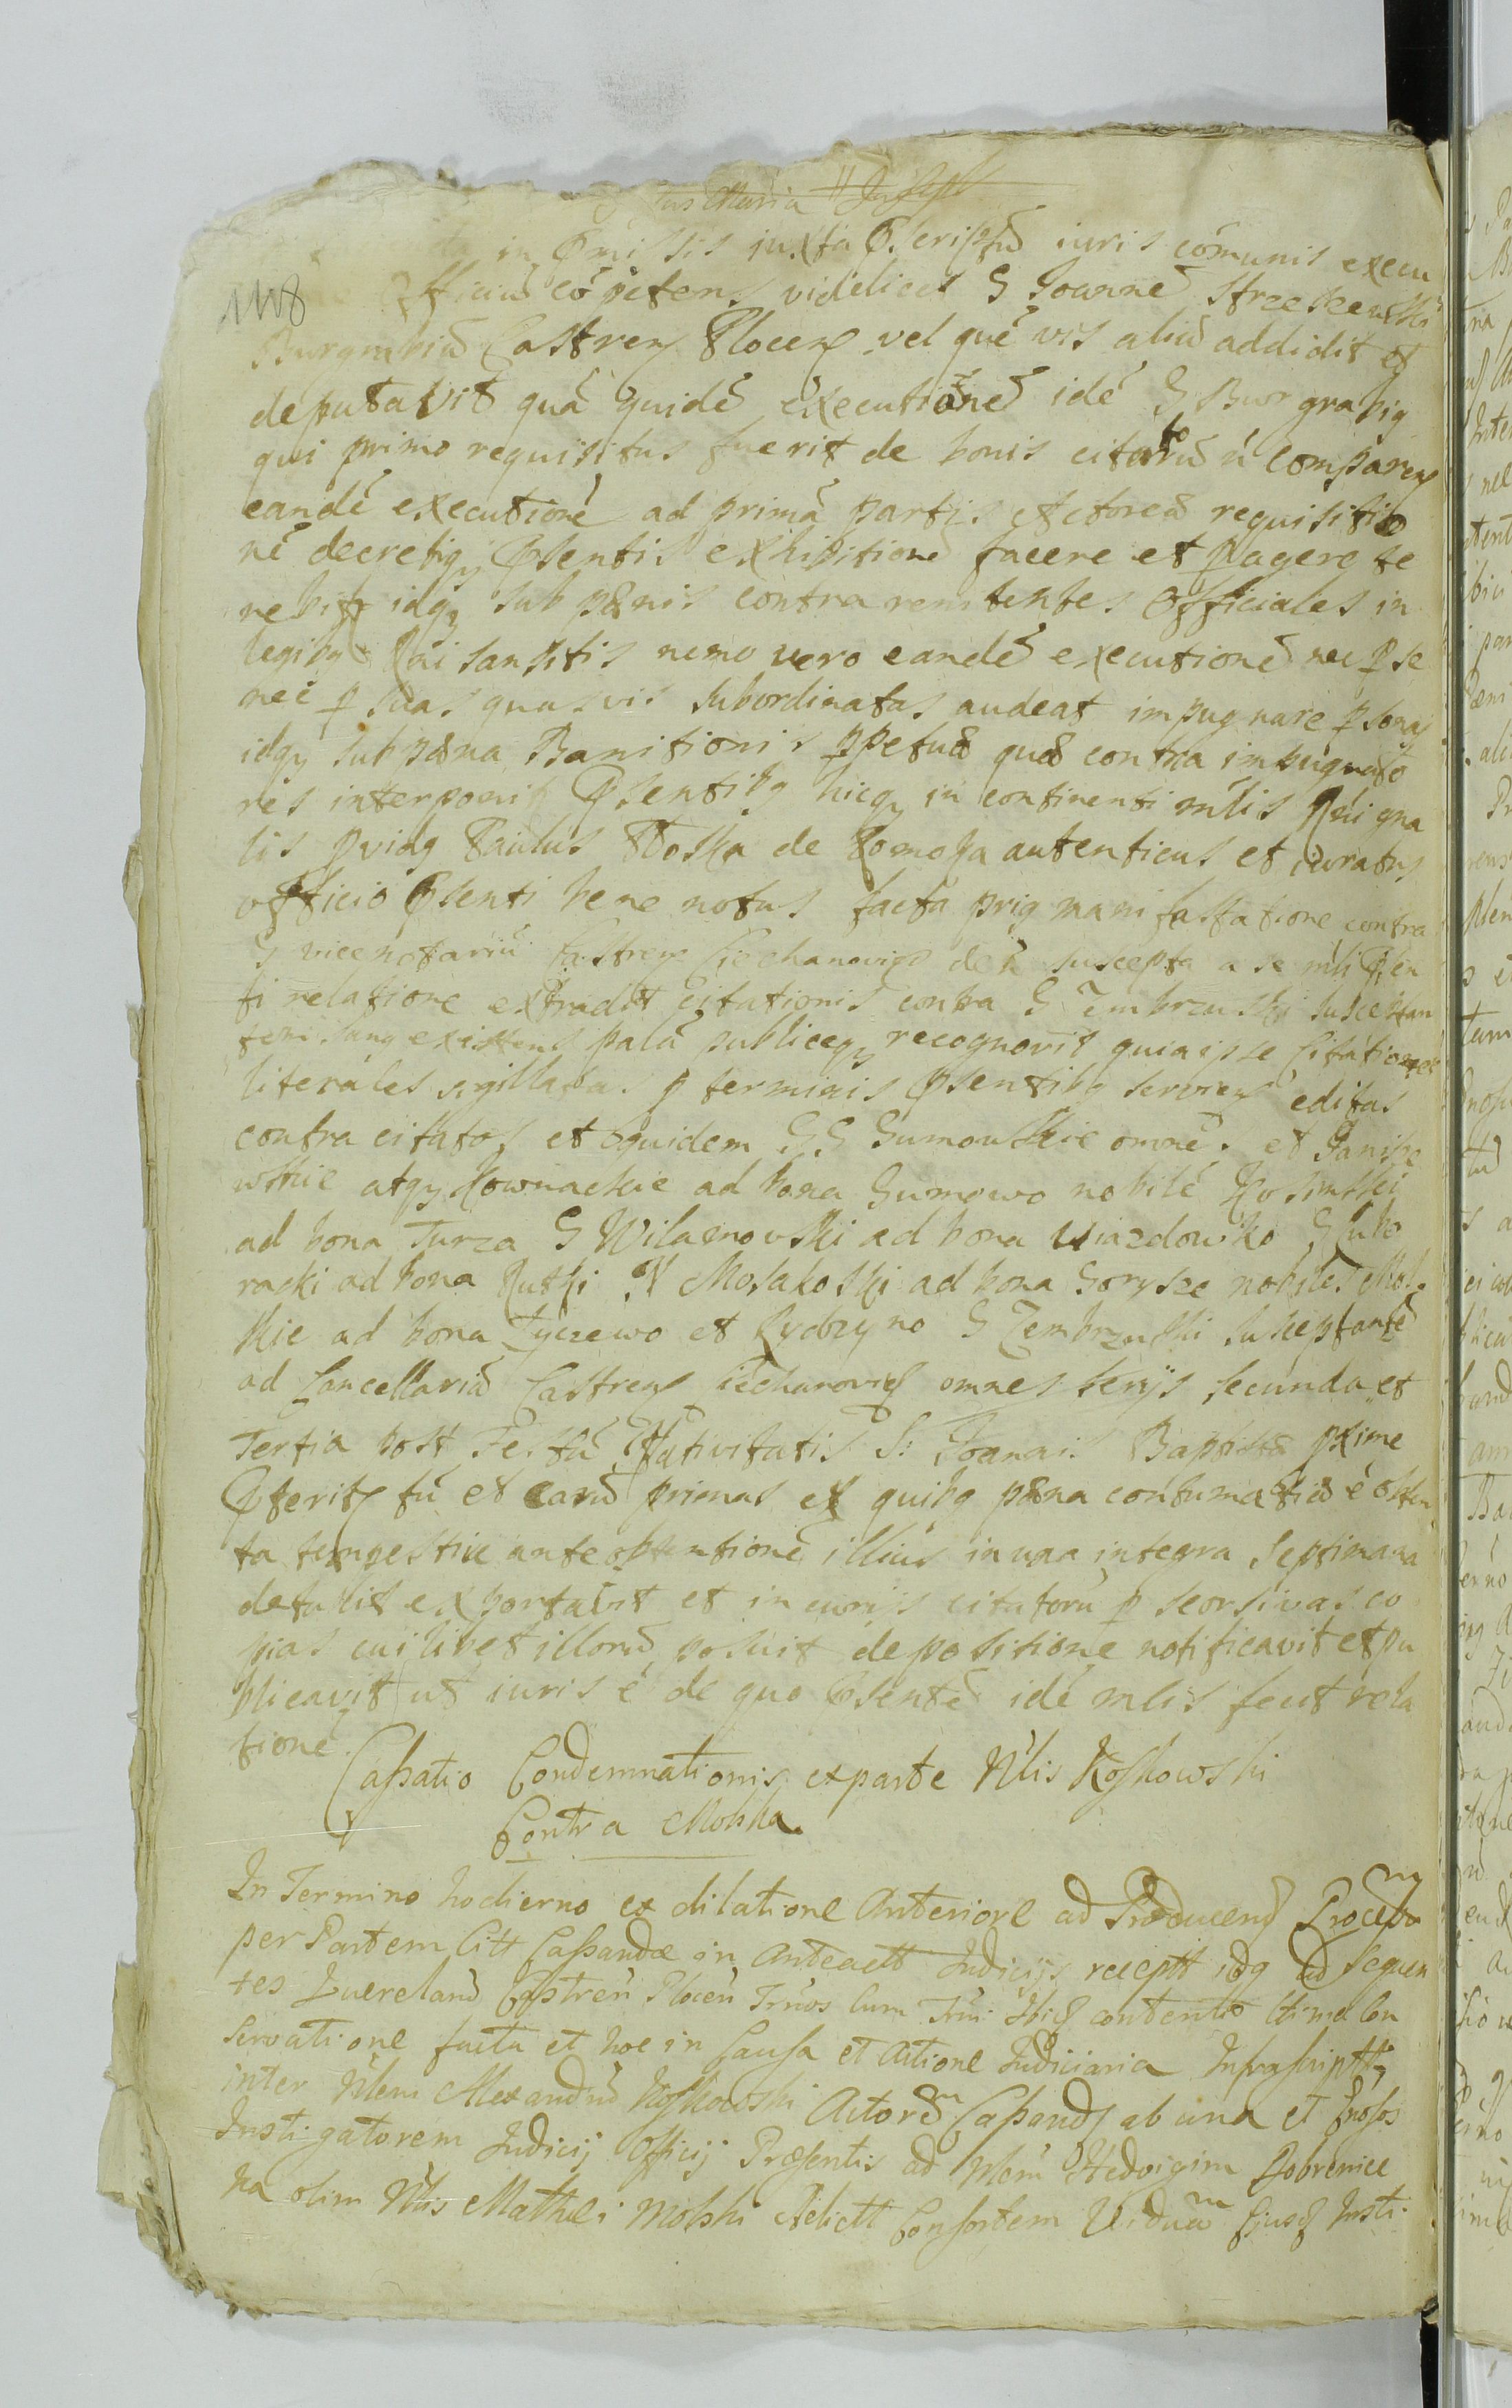 Maria
in Pmissis juxta Pscriptū iuris cōmunis execu
1118
officiū cōpetens videlicet G Joannē
Burgrabiū Castrens Plocens vel quē vis aliū addidit et
deputavit quā quidē executionē idē G Burgrabig
qui primo requisitus fuerit de bonis citatorū n̄ comparens
eandē executionē ad primā partis Actoreā requisitio
nē decretiqȝ Psentis exhibitionē facere et pagere te
nebit idqȝ sub pænis contra renitentes Officiales in
legibg Rni sancitis nemo vero eandē executionē nec p se
nec p suas quasvis subordinatas audeat impugnare psonas
idqȝ sub pæna Banitionis ppetuæ quæ contra impugnato
res interponit Psentibg hicqȝ in continenti mlis Rni gna
lis pvidg Paulus de Lomoza autenticus et iuratus
officio Psenti bene notus facta prig manifestatione contra
G vicenotariū Castrens Ciechanoviens de n̄ suscepta a se mli Psen
ti relatione extradit Citationis contra G Zembrzuski susceptan
tem sang existens palā publiceqȝ recognovit quia ipse Citationes
literales sigillatas p terminis Psentibg serviens editas
contra citatos et quidem GG Gumowskie omnē. et Janisze
wskie atqȝ Kownackie ad bona Gumowo nobilē Kosinski
ad bona Turza G Wilamowski ad bona Uiazdowko G Lubo
racki ad bona Rutki N Mosakoski ad bona Gorysze nobiles Mol
skie ad bona Zyczewo et Rydzyno G Zembrzuski susceptantē
ad Cancellariā Castrens Ciechanoviens omnes ferijs secunda et
Tertia post Festū Nativitatis S: Joannis Baptistæ pxime
Pteritg fū et earū primas ex quibg pæna contumatiæ ē obten
ta tempestive ante obtentionē illius in una integra septimana
detulit exportavit et in curijs citatorū p seorsivas co
pias cuilibet illorū posuit de positione notificavit et pu
blicavit ut iuris ē de quo Psentē idē mlis fecit rela
tionē.
Cassatio Condemnationis ex parte Nlis Koskowski
Contra Molska.
In Termino hodierno ex dilatione Anteriore ad Producend Processu
per Partem Citt Cassandæ in Anteactt Judicijs receptt idq ad sequen
tes Querelarū Castreñ Ploceñ Trn̄os cum Trn̄i Ibid contentio Ulima Con
servatione facta et hoc in Causa et Actione Judiciaria Infrascriptt
inter Nlem Alexandrū Koskowski Actorē Cassand ab una et Gnosos
Instigatorem Judicij Officij Præsentis ad Nlem Hedvigim Dobrenice
ka olim Nlis Mathei Molski Relictt Consortem Viduā Ejusd Insti